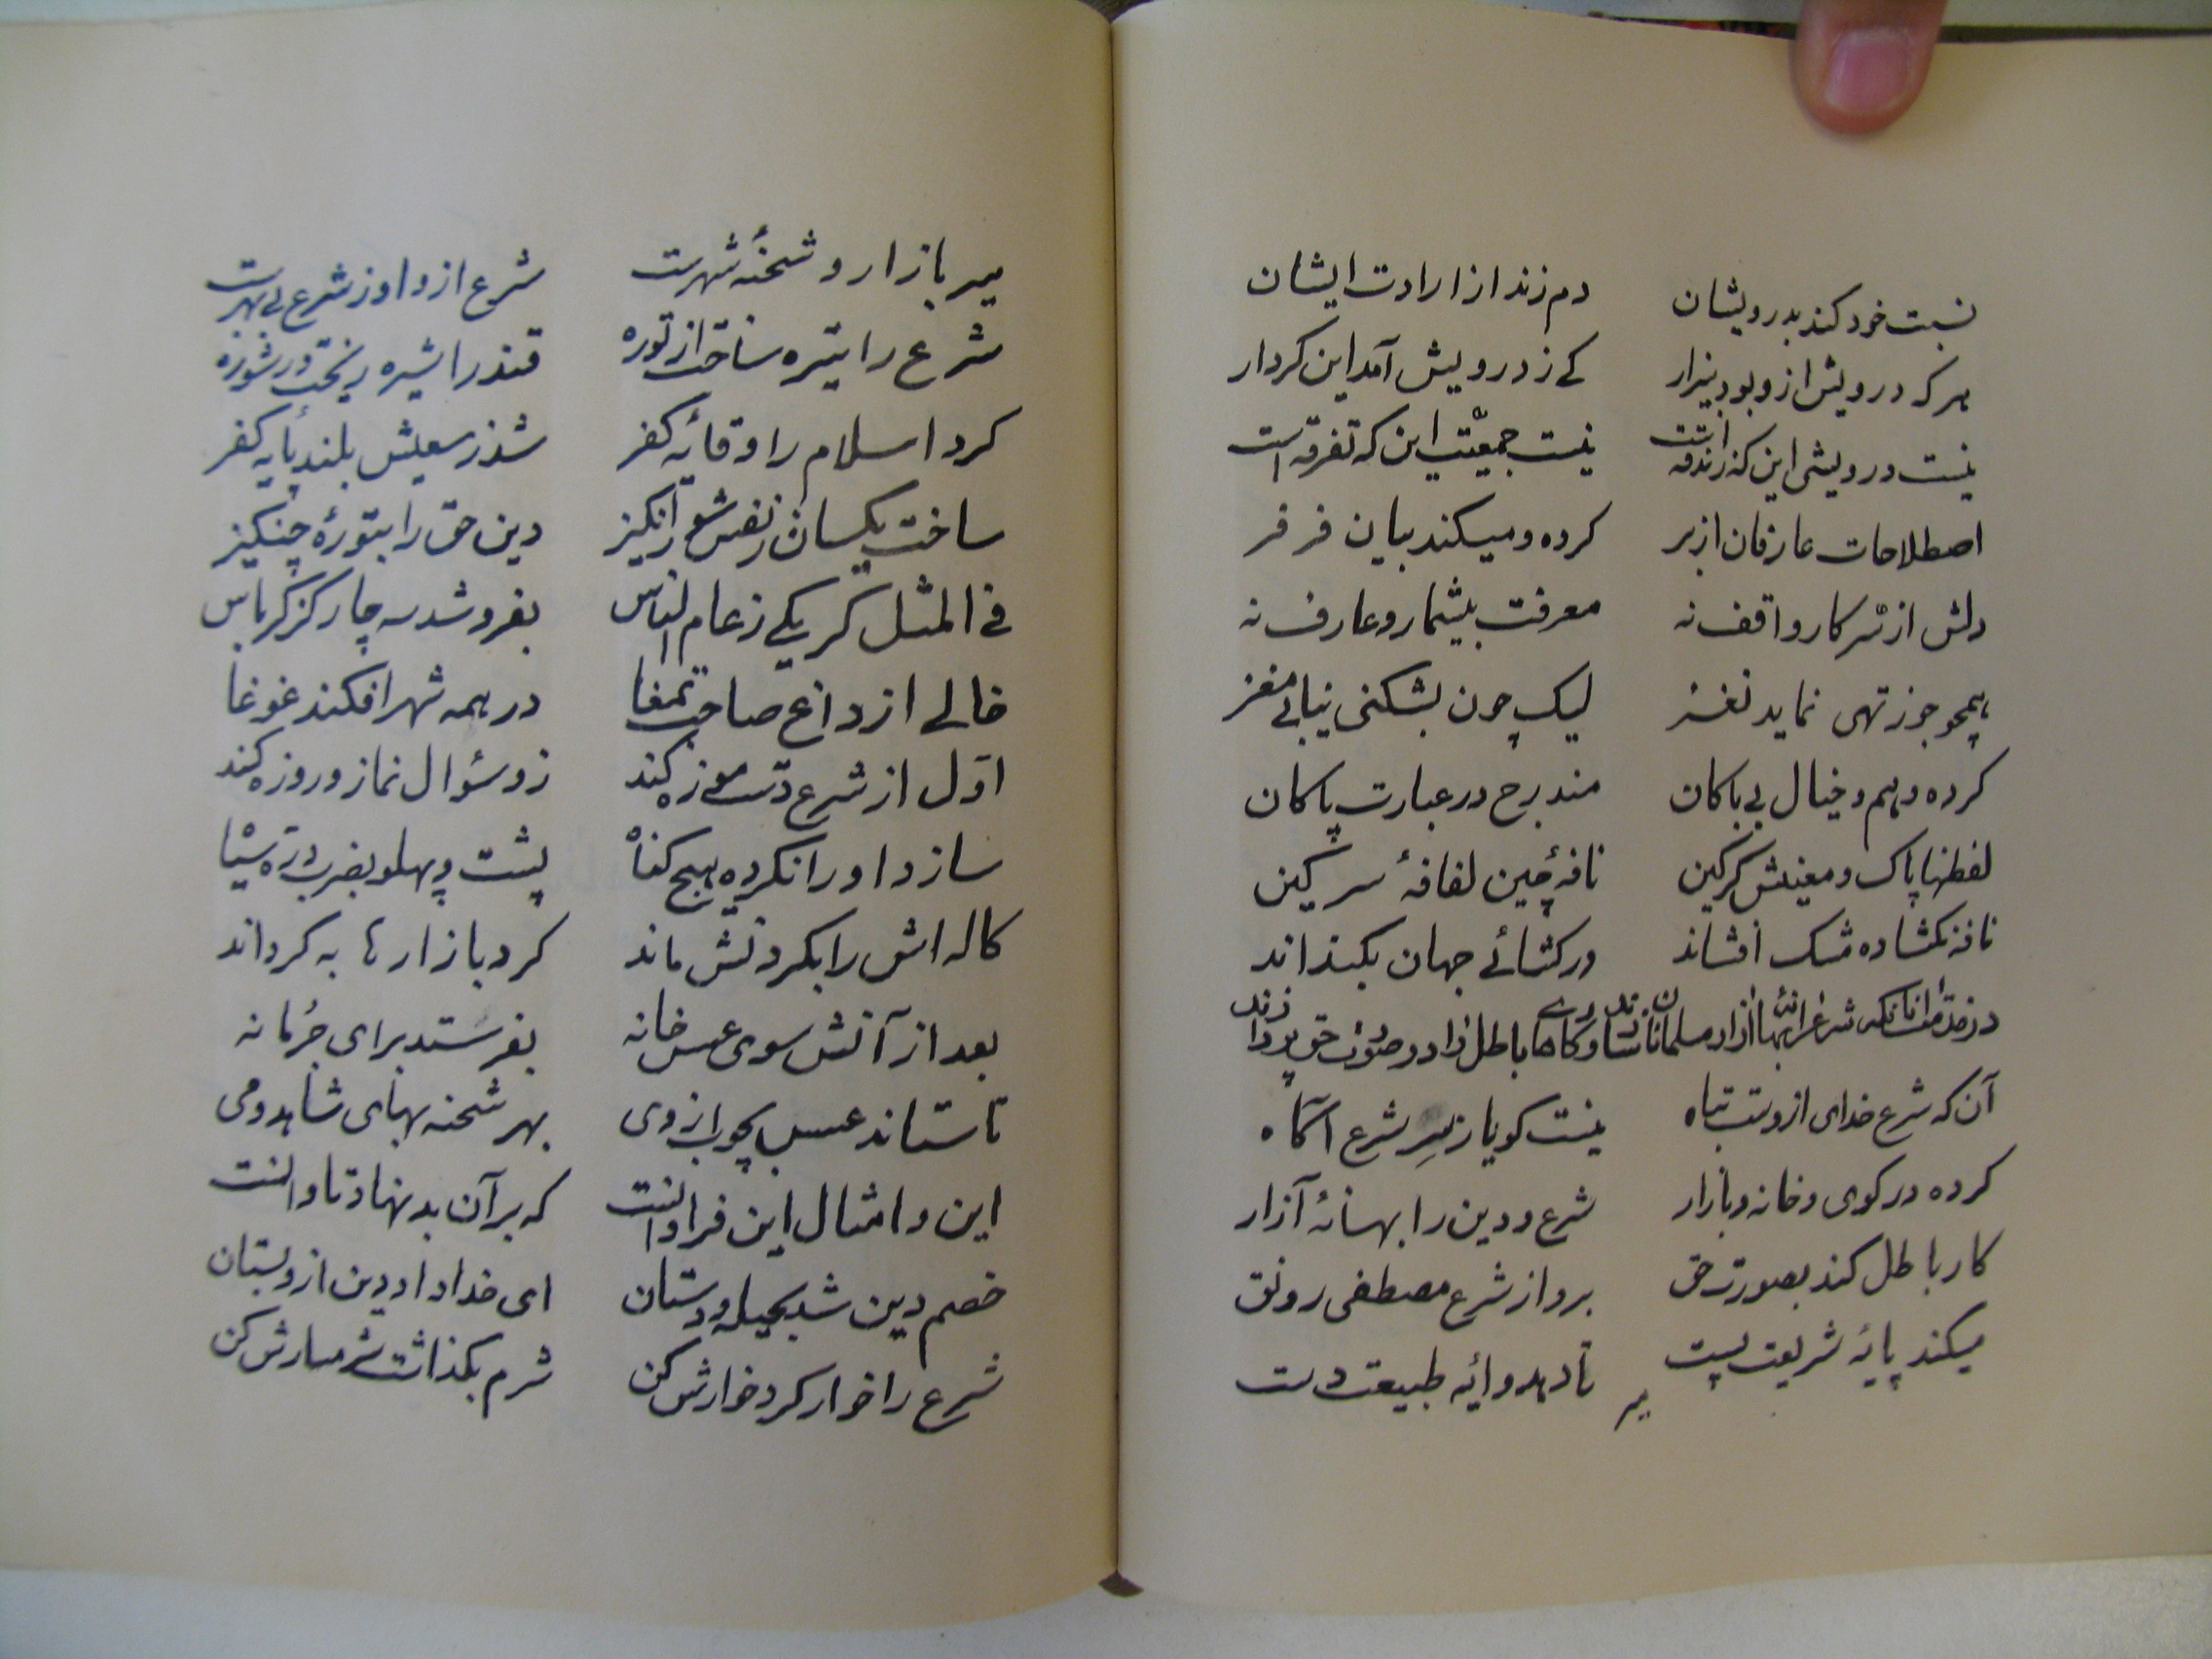 نسبت خود کند بدرویشان دم زند از ارادت ایشان
هر که درویش ازو بود بیزار کے ز درویش آمد این کردار
نیست درویشی این که زندقه است نیست جمعیّت این که تفرقه است
اصطلاحات عارفان از بر کرده و میکند بیان فر فر
دلش از سّر کار واقف نه معرفت بیشمار و عارف نه
همچو جوز تهی نماید نغز لیک چون بشکنی نیابی مغز
کرده وهم و خیال بی باکان مندرج در عبارت پاکان
لفظها پاک و معنیش گرگین نافهٔ چین لفافهٔ سرگین
نافه نکشاده مشک افشاند ور کشائے جهان بگنداند
در مذمت آنانکه شرع را بهانهٔ آزار مسلمانان سازند و کارهاے باطل را در صورت حق پردازند
آن که شرع خدای ازوست تباه نیست گویا ز سِر شرع آگاه
کرده در کوی و خانه و بازار شرع و دین را بهانهٔ آزار
کار باطل کند بصورت حق برد از شرع مصطفی رونق
میکند پایهٔ شریعت پست تا دهد وایهٔ طبیعت دست
میر
میر بازار و شحنهٔ شهرست شرع ازو او ز شرع بی بهرست
شرع را تیره ساخت از توره قند را شیره ریخت در شوره
کرد اسلام را وقایهٔ کفر شد ز سعیش بلند پایهٔ کفر
ساخت یکسان ز نفس شور انگیز دین حق را بتورهٔ چنگیز
فی المثل گر یکے ز عام الناس بفروشد سه چار گز کرباس
خالے از داغ صاحب تمغا در همه شهر افکند غوغا
اوّل از شرع دست موزه کند زو سؤال نماز و روزه کند
سازد او را نکرده هیچ گناه پشت و پهلو بضرب درّه سیاه
کاله اش را بگردنش ماند گرد بازارها به گرداند
بعد از آنش سوی عسس خانه بفرستد برای جُرمانه
تا ستاند عسس بچوب از وی بهر شحنه بهای شاهد و می
این و امثال این فراوانست که بر آن بد نهاد تاوانست
خصم دین شد بحیله و دستان ای خدا داد دین ازو بستان
شرع را خوار کرد خوارش کن شرم بگذاشت شرمسارش کن